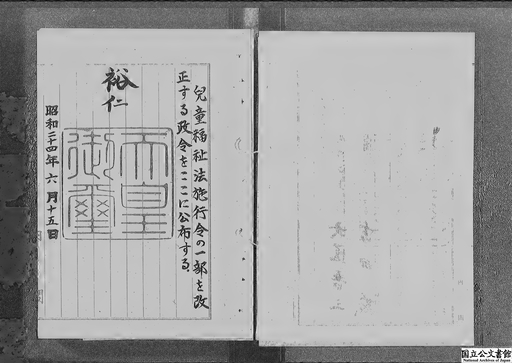 兒童福祉法施行令の一部を改
正する政令をここに公布する。
裕仁
天皇
御璽
昭和二十四年六月十五日
国立公文書館
National Archives of Japan